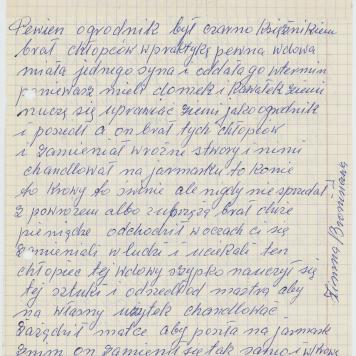 Pewien ogrodnik był czarno księżnikiem
brał chłopców w praktykę pewna wdowa
miała jednego syna i oddała go w termin
ponieważ mieli domek i kawałek ziemi
nuczą się uprawiać ziemi jako ogrodnik
i poszedł a on brał tych chłopców
i zamieniał w różne stwory i nimi
chandlował na jarmarku to konie
to krowy to świnie ale nigdy nie sprzedał
z powrozem albo z uprzężą brał duże
pieniądze odchodził w oczach ci się
zamieniali w ludzi i uciekali ten
chłopiec tej wdowy szypko nauczył się
tej sztuki i odszedł od mastra aby
na własny użytek chandlować
zarządził matce aby poszła na jarmark
z nim on zamienił się tak samo i
Bromirska